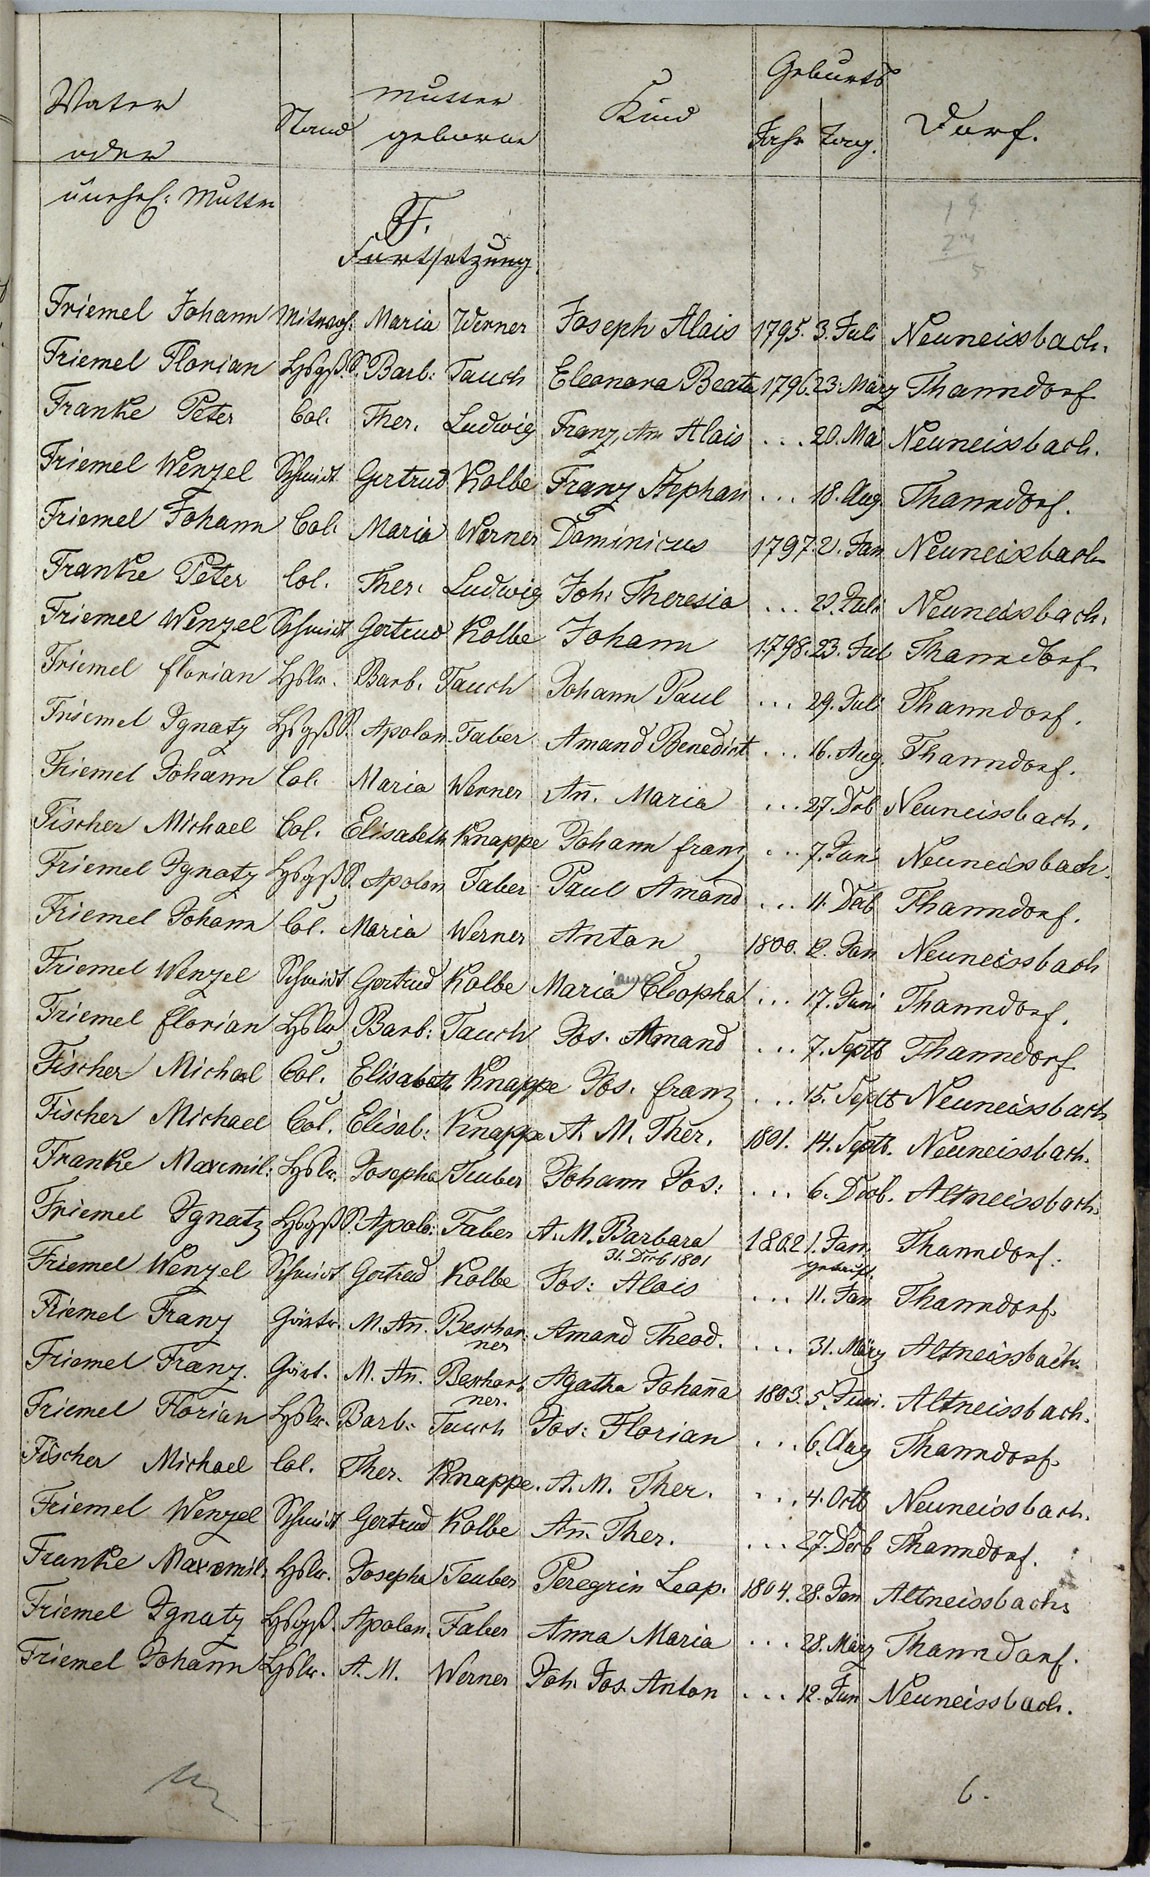 Vater oder unehel: Mutter | Stand | Mutter geborne | Kind | Geburts Jahr Tag. | Dorf.
F.
Fortsetzung.
Friemel Johann Maria Werner Joseph Alois 1795. 3. Juli Neuneissbach.
Friemel Florian Barb: Tauch Eleonora Beata 1796. 23. März Thanndorf
Franke Peter Col. Ther. Ludwig Franz An Alois ... 20. Mai Neuneissbach.
Friemel Wenzel Schmidt Gertrud Kolbe Franz Stephan ... 18. Aug Thanndorf.
Friemel Johann Col. Maria Werner Dominicus 1797. 2. Jan Neuneisbach
Franke Peter Col. Ther. Ludwig Joh: Theresia ... 29. Juli Neuneissbach.
Friemel Wenzel Schmidt Gertrud Kolbe Johann 1798. 23. Jul Thanndorf.
Friemel Florian Hslr. Barb. Tauch Johann Paul ... 29. Juli Thanndorf.
Friemel Ignatz Apolon. Faber Amand Benedict ... 16. Aug. Thanndorf.
Friemel Johann Col. Maria Werner An̄. Maria ... 27. Neuneissbach.
Fischer Michael Col. Elisabeth Knappe Johann Franz ... 7. Neuneissbach.
Friemel Ignatz Apolon Faber Paul Amand ... 11. Thanndorf.
Friemel Johann Col. Maria Werner Anton 1800. 12. Jan Neuneissbach
Friemel Wenzel Schmidt Gertrud Kolbe Maria Cleopha ... 17. Juni Thanndorf.
Friemel Florian Hslr Barb: Tauch Jos. Amand ... 7. Septb Thanndorf
Fischer Michael Col. Elisabeth Knappe Jos. Franz ... 15. Septb Neuneissbach
Fischer Michael Col. Elisab: Knappe A. M. Ther. 1801. 14. Septb. Neuneissbach.
Franke Maxemil: Hslr. Josepha Teuber Johann Jos: ... 6. Altneissbach.
Friemel Ignatz Apolo: Faber A. M. Barbara 1802 1. Jan Thanndorf.
31. 1801 getauft
Friemel Wenzel Schmidt Gertrud Kolbe Jos: Alois ... 11. Jan Thanndorf.
Friemel Franz Gärtr. M. An̄. Beschor: Amand Theod. ... 31. März Altneissbach.
ner
Friemel Franz. Gärt. M. An. Beschor: Agatha Johan̄a 1803. 5. Juni. Altneissbach.
ner.
Friemel Florian Hslr. Barb: Tauch Jos: Florian ... 6. Aug Thanndorf.
Fischer Michael Col. Ther. Knappe. A. M. Ther. ... 4. Octb Neuneissbach.
Friemel Wenzel Schmidt Gertrud Kolbe An̄. Ther. ... 27. Thanndorf.
Franke Maxemil. Hslr. Josepha Teuber Peregrin Leop. 1804. 28. Jan Altneissbach.
Friemel Ignatz Apolon. Faber Anna Maria ... 28. März Thanndorf.
Friemel Johann Hslr. A. M. Werner Joh. Jos. Anton ... 12. Jun Neuneissbach.
6.